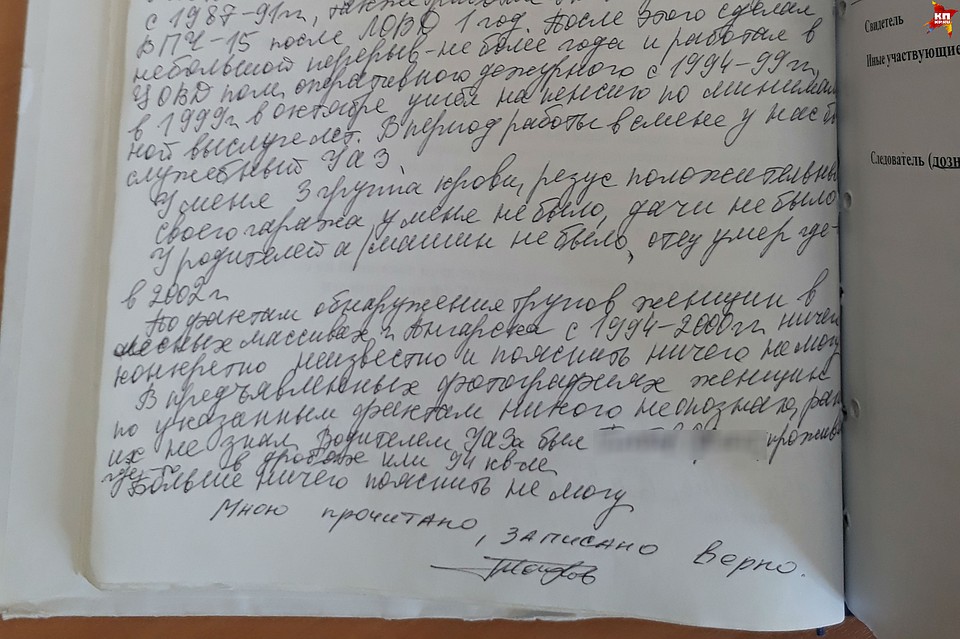 с 1987-91гг, также
ВПЧ-15 после ЛОВД 1 год. После этого сделал
небольшой перерыв - не более года и работал в
ЦОВД пом. оперативного дежурного с 1994-99гг,
в 1999г в октябре ушёл на пенсию по минималь
ной выслуге лет. В период работы в смене у нас бы
служебный УАЗ.
У меня 3 группа крови, резус положительны
своего гаража у меня не было, дачи не было
У родителей а/машин не было, отец умер где-
в 2002г.
По фактам обнаружения трупов женщин в
лесных массивах г. Ангарска с 1994-2000гг ничего
конкретно неизвестно и пояснить ничего не могу
В предъявленных фотографиях женщин
по указанным фактам никого не опознаю, ран
их не знал. Водителем УАЗа был прожива
где-то в или 94 кв-ле
Больше ничего пояснить не могу
Мною прочитано, записано верно.
Свидетель
Иные участвующие
Следователь (дозн
КП
KP.RU